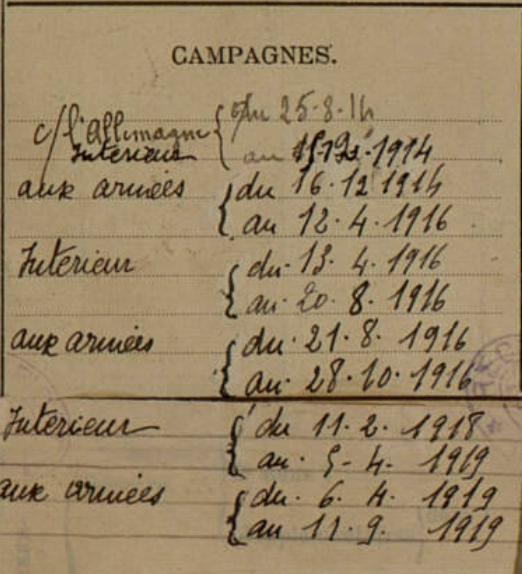 CAMPAGNES.
c/ l'Allemagne { du 25-8-14
Interieur au 15-12-1914
aux armées { du 16.12 1914
au 12.4.1916
Interieur { du 13.4.1916
au 20.8.1916
aux armées { du 21.8.1916
au 28.10.1916
Interieur { du 11.2.1918
au 5-4-1919
aux armées { du 6.4.1919
au 11.9.1919